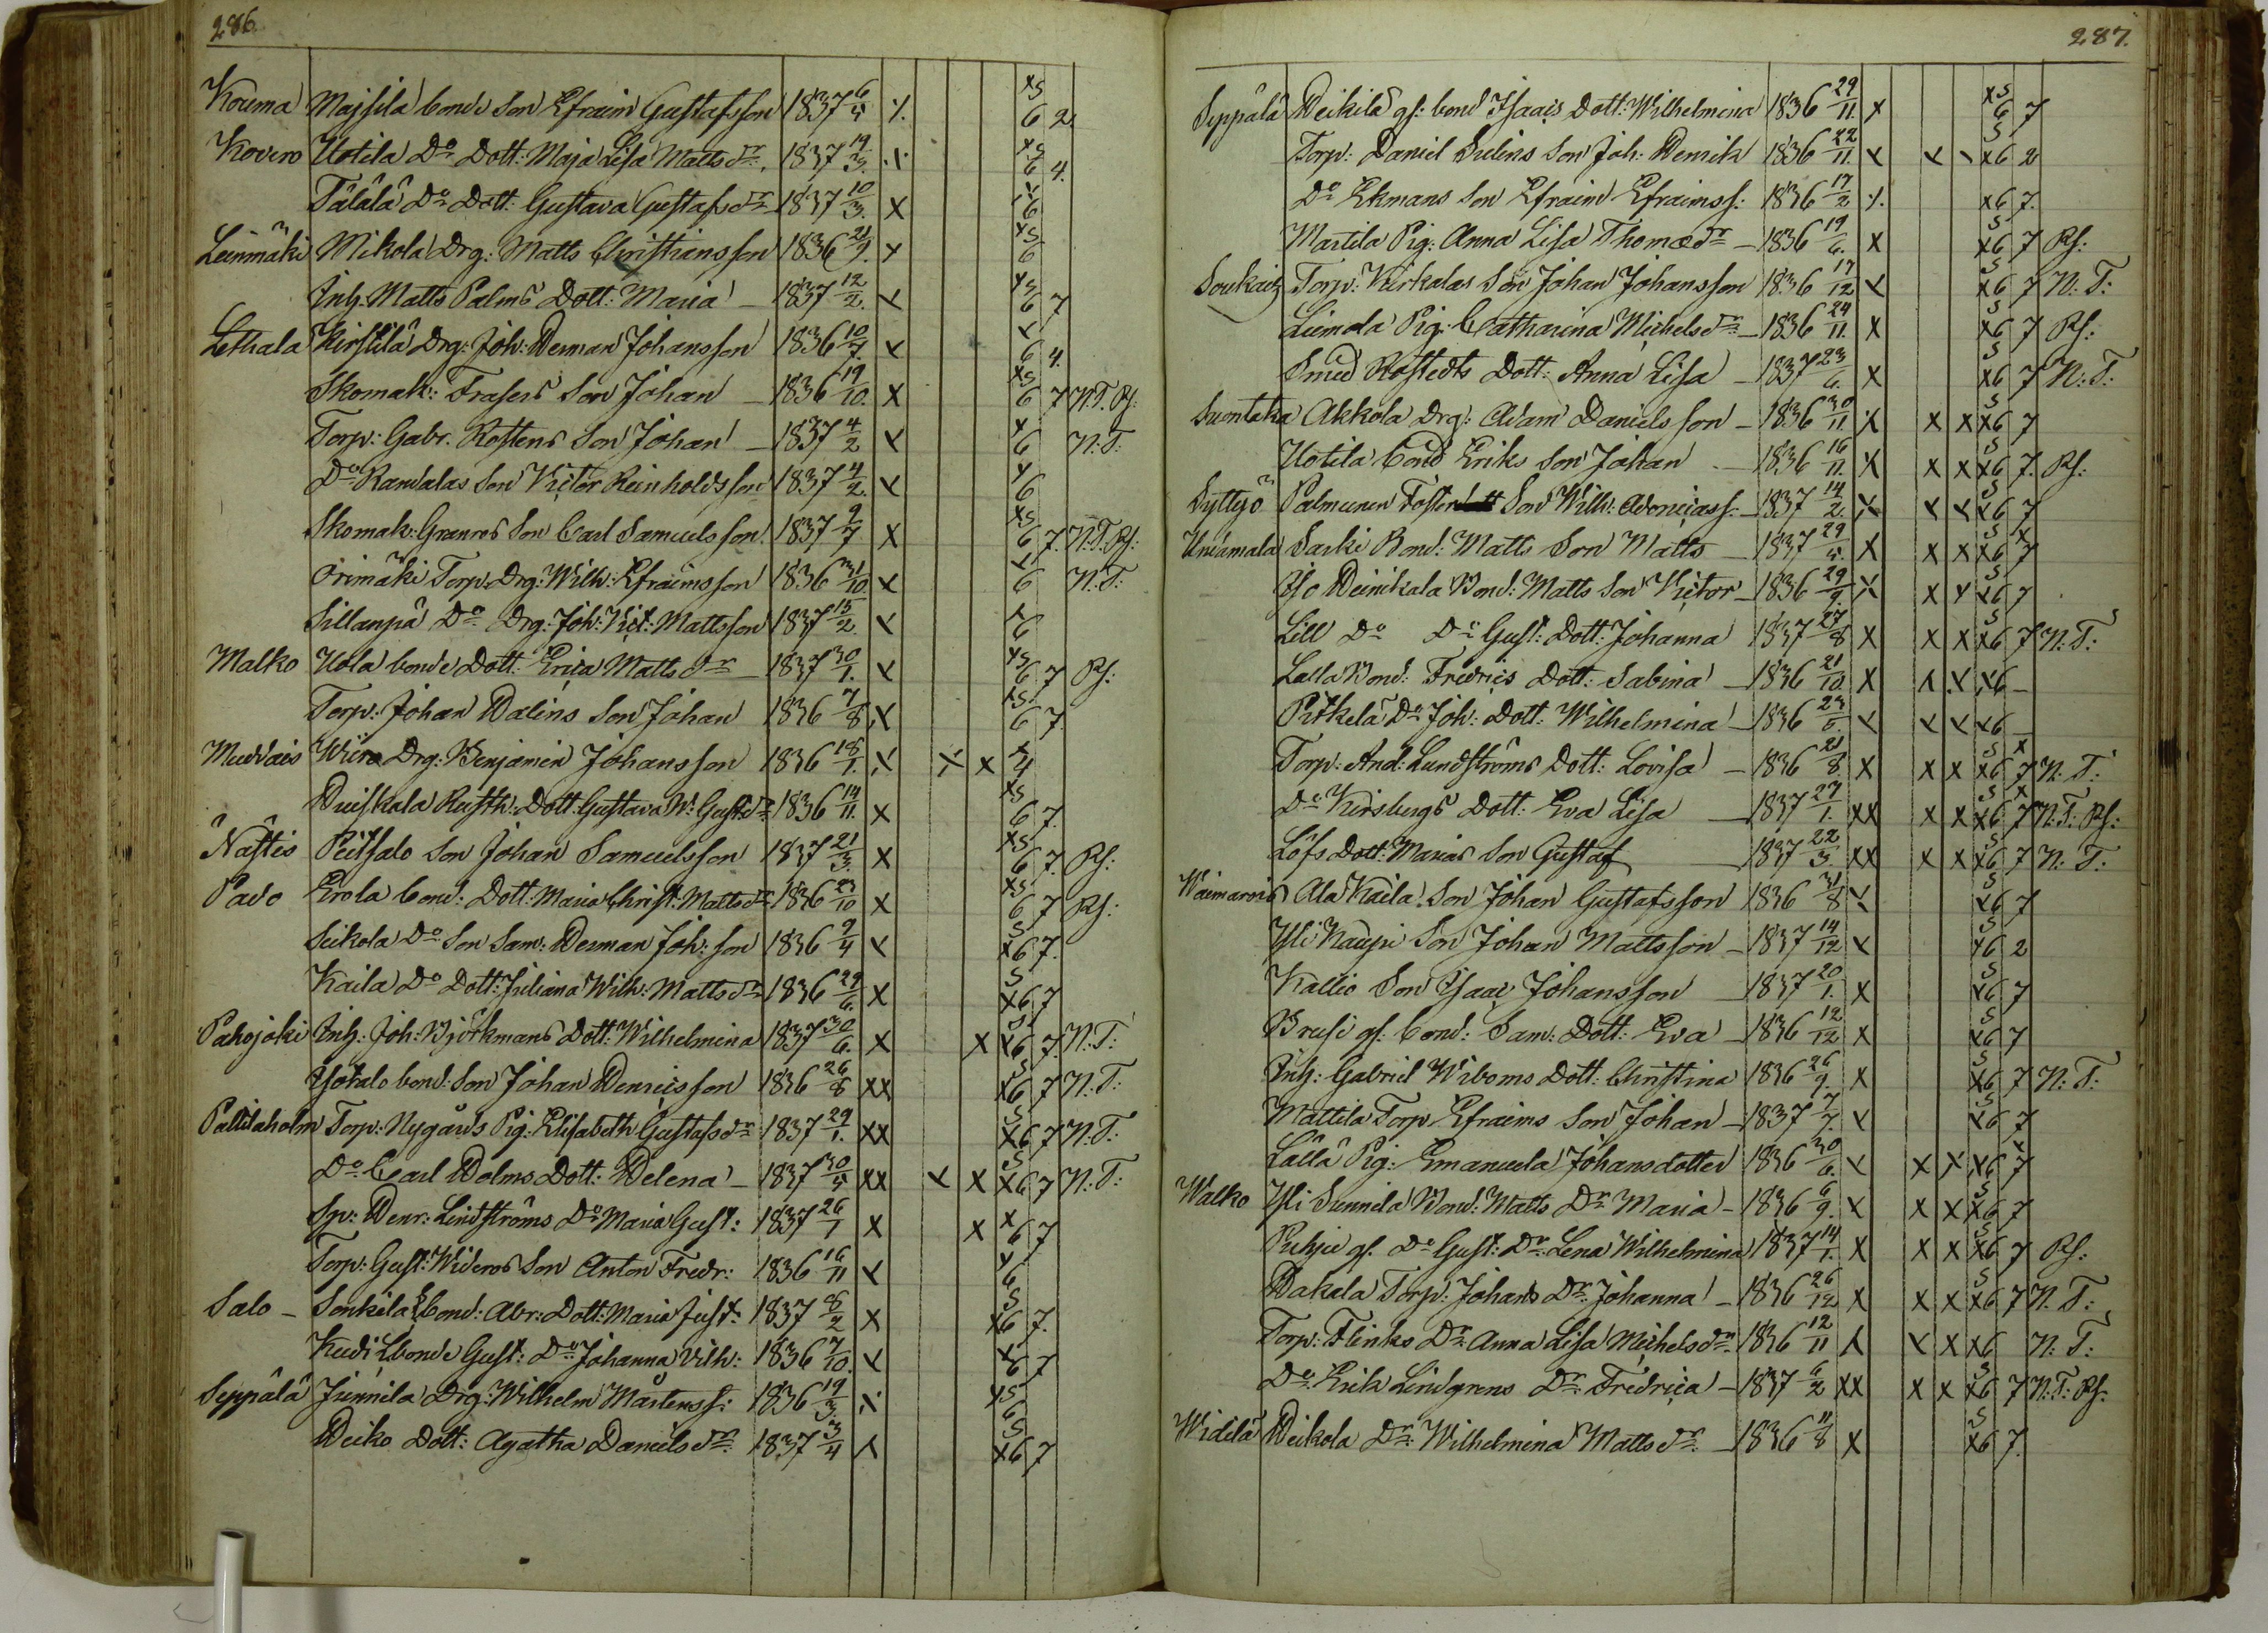 286.
Kouma Majsila bonde Son Efraim Gustafsson 1837 6/4 ٪ x5 6 2
Kovero Uotila Do Dott: Maja Lisa Matts dr. 1837 19/3. x5 6 4.
Tälälä Do Dott: Gustava Gustafs dr 1837 10/3. x x 6
Leinmäki Mikola Drg: Matts Christiansson 1836 21/9. x x5 6
Inh. Matts Palms Dott: Maria 1837 12/2. x x5 6 7
Lethala Kirstilä Drg: Joh: Herman Johansson 1836 10/7. x x 6 4.
Skomak: Frasers Son Johan 1836 19/10. x x5 6 7 N.T. Rs:
Torp: Gabr. Rostens Son Johan 1837 4/2 x x 6 N:T:
Do Randalas Son Victor Reinholdsson 1837 4/2. x x 6
Skomak: Granros Son Carl Samuelsson 1837 9/7 x x5 6 7. N:T. Rs:
Orimäki Torp. Drg: Wilh: Efraimsson 1836 31/10. x x 6 N:T:
Sillanpä Do Drg: Joh: Vict: Mattsson 1837 15/2. x x 6
Malko Uola bonde Dott: Erica Matts dr 1837 30/1. x x5 6 7 Rs:
Torp: Johan Walins Son Johan 1836 7/8 x x5 6 7.
Mudais Wiira Drg: Benjamin Johansson 1836 18/1. x x x x 4
Huiskala Rusth: Dott: Gustava W: Gust: dr 1836 14/11. x x5 6 7.
Nästis Peitsalo Son Johan Samuelsson 1837 21/3. x x5 6 7. Rs:
Pavo Erola bond: Dott: Maria Christ: Matts dr 1836 23/10 x x5 6 7 Rs:
Seikola Do Son Sam: Herman Joh: son 1836 9/4 x 5 x6 7.
Kaila Do Dott: Juliana Wilh: Matts dr 1836 29/6. x 5 x6 7
Pahojoki Inh: Joh: Björkmans Dott: Wilhelmina 1837 30/6. x x 5 x6 7. N:T:
Yötalo bond: Son Johan Henricsson 1836 26/8 xx 5 x6 7 N:T:
Pattilaholm Torp: Nygårds Pig: Elisabeth Gustafs dr 1837 29/1. xx 5 x6 7 N:T:
Do Carl Holms Dott: Helena 1837 30/4 xx x x 5 x6 7 N:T:
Sp: Henr: Lindströms Do Maria Gust: 1837 26/1 x x x 6 7
Torp: Gust: Wideros Son Anton Fredr: 1836 16/11 x x 6
Salo Sonkila bond: Abr: Dott: Maria Just: 1837 8/2 x 5 x6 7.
Kudi L bonde Gust: Do Johanna Vilh: 1836 7/10. x x 6 7
Seppälä Junnila Drg: Wilhelm Mårtenss: 1836 19/3. x x5 6
Heiko Dott: Agatha Daniels dr. 1837 3/4 x 5 x6 7
287.
Seppälä Heikilä gs: bond Isaacs Dott: Wilhelmina 1836 29/11. x x5 6 7
Torp: Daniel Silins Son Joh: Henrik 1836 22/11. x x x 5 x6 2
Do Ekmans Son Efraim Efraimss: 1836 17/2 ٪ x6 7.
Martila Pig: Anna Lisa Thomæ dr 1836 19/6. x 5 x6 7 Rs:
Soukais Torp: Kirkalas Son Johan Johansson 1836 17/12 x 5 x6 7 N:T:
Liimola Pig: Catharina Michels dr 1836 24/11. x 5 x6 7 Rs:
Smed Rostedts Dott: Anna Lisa 1837 23/6. x 5 x6 7 N:T:
Suontaka Akkola Drg: Adam Danielsson 1836 30/11. x x x 5 x6 7
Uotila bond Eriks Son Johan 1836 16/11. x x x x6 7. Rs:
Syttyö Palmunen Foster Son Wilh: Adoniass: 1837 14/2. x x x 5 x6 7
Uniänmala Sarki Bond: Matts Son Matts 1837 29/4. x x x 5 x6 x 7
Iso Heinikala Bond: Matts Son Victor 1836 29/9. x x x 5 x6 7
Lill Do Do Gust: Dott: Johanna 1837 27/8 x x x 5 x6 7 N:T:
Lalla Bond: Fredrics Dott: Sabina 1836 21/10. x x x x6
Pitkelä Do Joh: Dott: Wilhelmina 1836 23/5. x x x x6
Torp: And: Lundströms Dott: Lovisa 1836 21/8. x x x 5 x6 x 7 N:T:
Do Kirsbergs Dott: Eva Lisa 1837 27/1. xx x x 5 x6 x 7 N:T: Rs:
Löfs Dott: Marias Son Gustaf 1837 22/3. xx x x x6 7 N:T:
Waimarois Ala Kaila Son Johan Gustafsson 1836 31/8 x 5 x6 7
Yli Kaupi Son Johan Mattsson 1837 14/12 x 5 x6 2
Kallio Son Isaac Johansson 1837 20/1. x 5 x6 7
Brusi gs. bond: Sam: Dott: Eva 1836 12/12 x 5 x6 7
Inh: Gabriel Wiboms Dott: Christina 1836 26/9. x 5 x6 7 N:T:
Mattila Torp Efraims Son Johan 1837 7/7. x 5 x6 7
Lällä Pig: Emanuela Johansdotter 1836 30/6. x x x x6 x 7
Walko Yli Sunnila Bond: Matts Dr Maria 1836 6/9. x x x 5 x6 7
Puhju gs. Do Gust: Dr: Lena Wilhelmina 1837 14/1. x x x 5 x6 7 Rs:
Hakala Torp: Johans Dr: Johanna 1836 26/12 x x x 5 x6 7 N:T:
Torp: Flinks Dr: Anna Lisa Michels dr 1836 12/11 x x x x6 N:T:
Do Erik Lindgrens Dr: Fredrica 1837 6/2 xx x x 5 x6 7 N:T: Rs:
Widilä Heikola Dr: Wilhelmina Matts dr. 1836 11/8 x 5 x6 7.